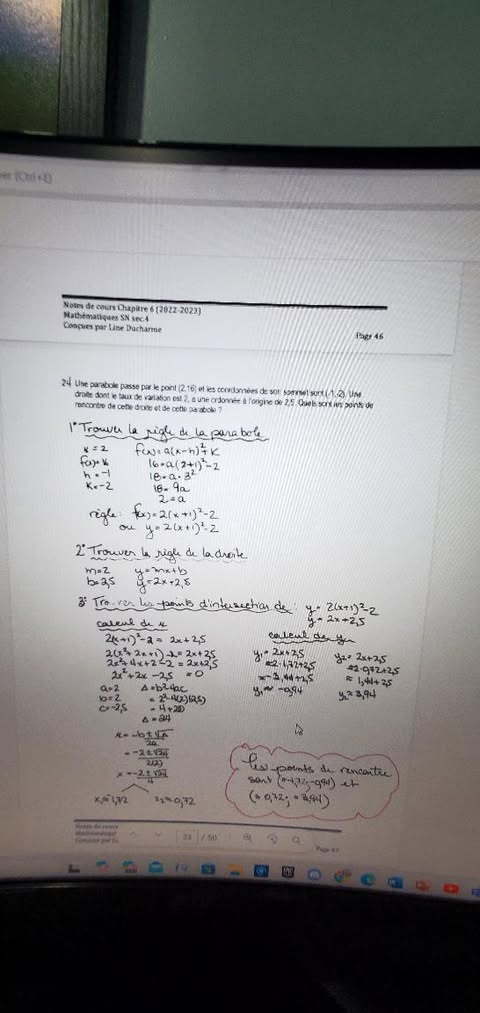 (Ctrl+E)
Notes de cours Chapitre 6 (2022-2023)
Mathématiques SN sec.4
Conçues par Line Ducharme
Page 46
24 Une parabole passe par le point (2,16) et les coordonnées de son sommet sont (-1,-2). Une
droite dont le taux de variation est 2, a une ordonnée à l'origine de 2,5. Quels sont les points de
rencontre de cette droite et de cette parabole ?
1° Trouver la règle de la parabole
x = 2 f(x) = a(x-h)²+k
f(x)=16 16 = a(2+1)²-2
h = -1 18 = a·3²
k = -2 18 = 9a
2 = a
règle: f(x) = 2(x+1)²-2
ou y = 2(x+1)²-2
2° Trouver la règle de la droite
m=2 y=mx+b
b=2,5 y=2x+2,5
3° Trouver les points d'intersection de: y = 2(x+1)²-2
y = 2x+2,5
calcul de x
2(x+1)²-2 = 2x+2,5
2(x²+2x+1)-2 = 2x+2,5
2x²+4x+2-2 = 2x+2,5
2x²+2x-2,5 = 0
a=2 Δ=b²-4ac
b=2 = 2²-4(2)(-2,5)
c=-2,5 = 4+20
Δ=24
x = -b±√Δ
2a
= -2±√24
2(2)
x = -2±√24
4
x₁≈-1,72 x₂≈0,72
calcul de y
y₁= 2x+2,5 y₂= 2x+2,5
≈2·-1,72+2,5 ≈2·0,72+2,5
≈-3,44+2,5 ≈1,44+2,5
y₁≈-0,94 y₂≈3,94
Les points de rencontre
sont (≈-1,72;-0,94) et
(≈0,72;≈3,94)
Notes de cours
Page 47
23 / 50